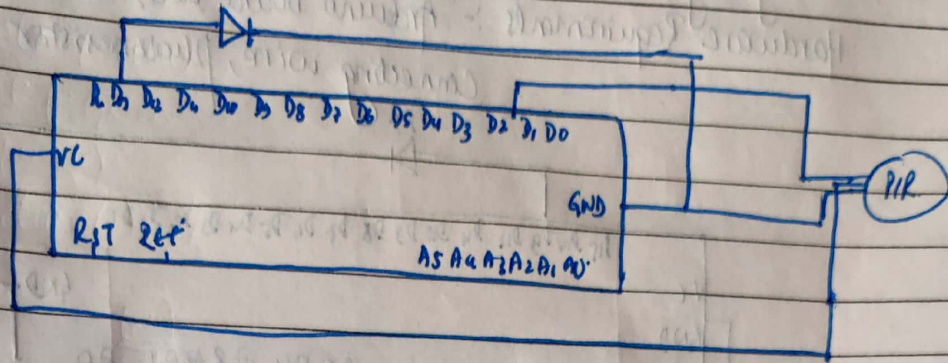 D13 D12 D11 D10 D9 D8 D7 D6 D5 D4 D3 D2 D1 D0
VC
PIR
GND
RST
A5 A4 A3 A2 A1 A0